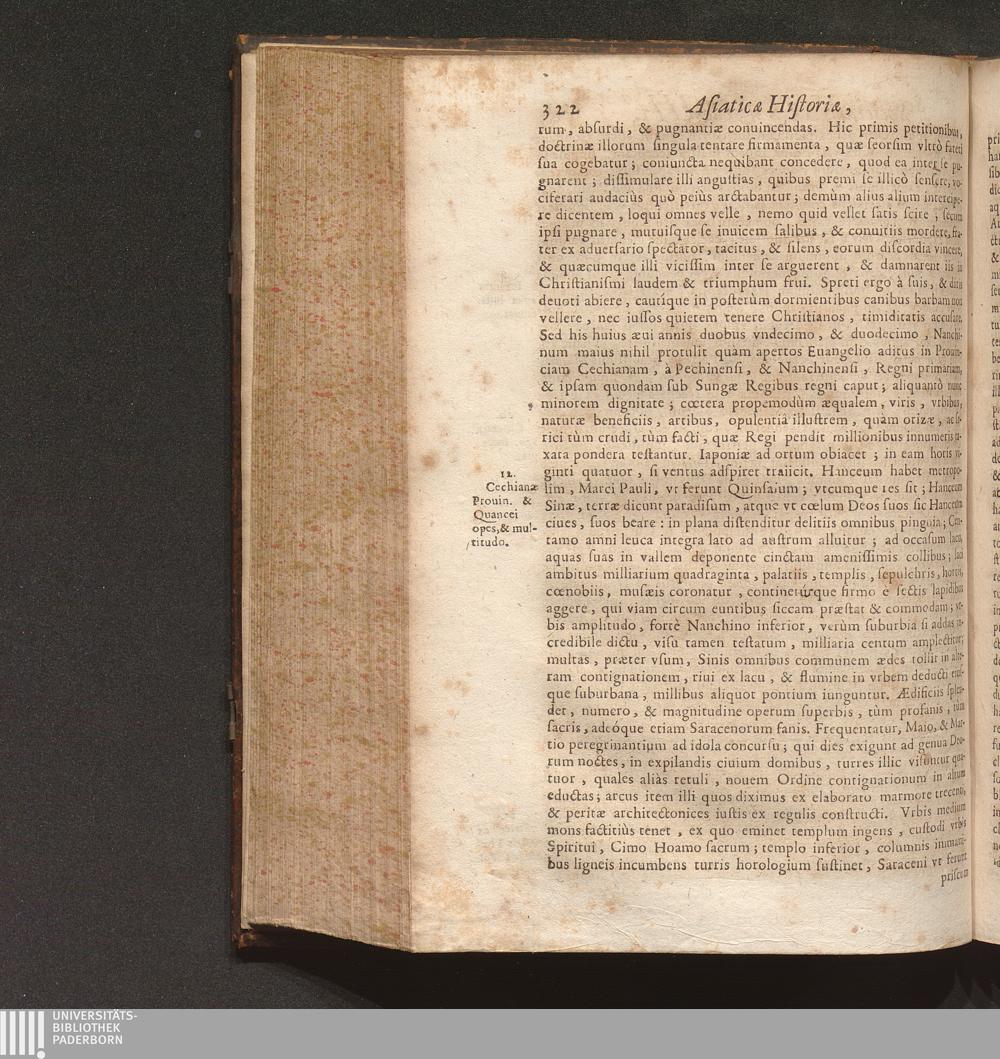 322 Aſiaticæ Hiſtoriæ,
rum, abſurdi, & pugnantiæ conuincendas. Hic primis petitionibus,
doctrinæ illorum ſingula tentare firmamenta, quæ ſeorſim vltrò fateri
ſua cogebatur; coniuncta nequibant concedere, quod ea inter ſe pu-
gnarent; diſſimulare illi anguſtias, quibus premi ſe illicò ſenſere, vo-
ciferari audaciùs quò peiùs arctabantur; demùm alius alium intercipe-
re dicentem, loqui omnes velle, nemo quid vellet ſatis ſcire; ſecum
ipſi pugnare, mutuiſque ſe inuicem ſalibus, & conuitiis mordere, fra-
ter ex aduerſario ſpectator, tacitus, & ſilens, eorum diſcordia vincere,
& quæcumque illi viciſſim inter ſe arguerent, & damnarent iis in
Chriſtianiſmi laudem & triumphum frui. Spreti ergo à ſuis, & diris
deuoti abiere, cautíque in poſterùm dormientibus canibus barbam non
vellere, nec iuſſos quietem tenere Chriſtianos, timiditatis accuſare.
Sed his huius æui annis duobus vndecimo, & duodecimo, Nanchi-
num maius nihil protulit quàm apertos Euangelio aditus in Prouin-
ciam Cechianam, à Pechinenſi, & Nanchinenſi, Regni primariam,
& ipſam quondam ſub Sungæ Regibus regni caput; aliquantò nunc
minorem dignitate; cœtera propemodùm æqualem, viris, vrbibus,
naturæ beneficiis, artibus, opulentiâ illuſtrem, quàm orizæ, ac ſe-
rici tùm crudi, tùm facti, quæ Regi pendit millionibus innumeris ta-
xata pondera teſtantur. Iaponiæ ad ortum obiacet; in eam horis vi-
ginti quatuor, ſi ventus adſpiret traiicit. Hanceum habet metropo-
12.
Cechianæ
Prouin. &
Quancei
opes, & mul-
titudo.
lim, Marci Pauli, vt ferunt Quinſaium; vtcumque res ſit; Hanceum
Sinæ, terræ dicunt paradiſum, atque vt cœlum Deos ſuos ſic Hanceum
ciues, ſuos beare: in plana diſtenditur delitiis omnibus pinguia; Cen-
tamo amni leuca integra lato ad auſtrum alluitur; ad occaſum lacu,
aquas ſuas in vallem deponente cinctam ameniſſimis collibus; laci
ambitus milliarium quadraginta, palatiis, templis, ſepulchris, hortis,
cœnobiis, muſæis coronatur, continetúrque firmo è ſectis lapidibus
aggere, qui viam circum euntibus ſiccam præſtat & commodam; vr-
bis amplitudo, fortè Nanchino inferior, verùm ſuburbia ſi addas in-
credibile dictu, viſu tamen teſtatum, milliaria centum amplectitur;
multas, præter vſum, Sinis omnibus communem ædes tollit in alte-
ram contignationem, riui ex lacu, & flumine in vrbem deducti eiuſ-
que ſuburbana, millibus aliquot pontium iunguntur. Ædificiis ſplen-
det, numero, & magnitudine operum ſuperbis, tùm profanis, tùm
ſacris, adeóque etiam Saracenorum fanis. Frequentatur, Maio, & Mar-
tio peregrinantium ad idola concurſu; qui dies exigunt ad genua Deo-
rum noctes, in expilandis ciuium domibus, turres illic viſuntur qua-
tuor, quales aliàs retuli, nouem Ordine contignationum in altum
eductas; arcus item illi quos diximus ex elaborato marmore trecenti,
& peritæ architectonices iuſtis ex regulis conſtructi. Vrbis medium
mons factitiùs tenet, ex quo eminet templum ingens, cuſtodi vrbis
Spiritui, Cimo Hoamo ſacrum; templo inferior, columnis immani-
bus ligneis incumbens turris horologium ſuſtinet, Saraceni vt ferunt
priſcum
UNIVERSITÄTS-
BIBLIOTHEK
PADERBORN